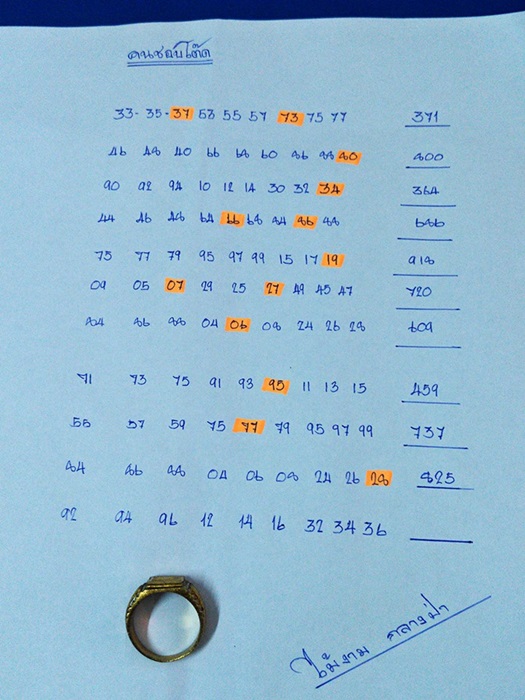 คนชอบโต๊ด
33-35-37 53 55 57 73 75 77 371
46 48 40 66 68 60 86 88 80 800
90 92 94 10 12 14 30 32 34 364
44 46 48 64 66 68 84 86 88 686
75 77 79 95 97 99 15 17 19 918
09 05 07 29 25 27 49 45 47 720
84 86 88 04 06 08 24 26 28 609
71 73 75 91 93 95 11 13 15 459
55 57 59 75 77 79 95 97 99 737
84 86 88 04 06 08 24 26 28 825
92 94 96 12 14 16 32 34 36
ไม้งาม กลางป่า